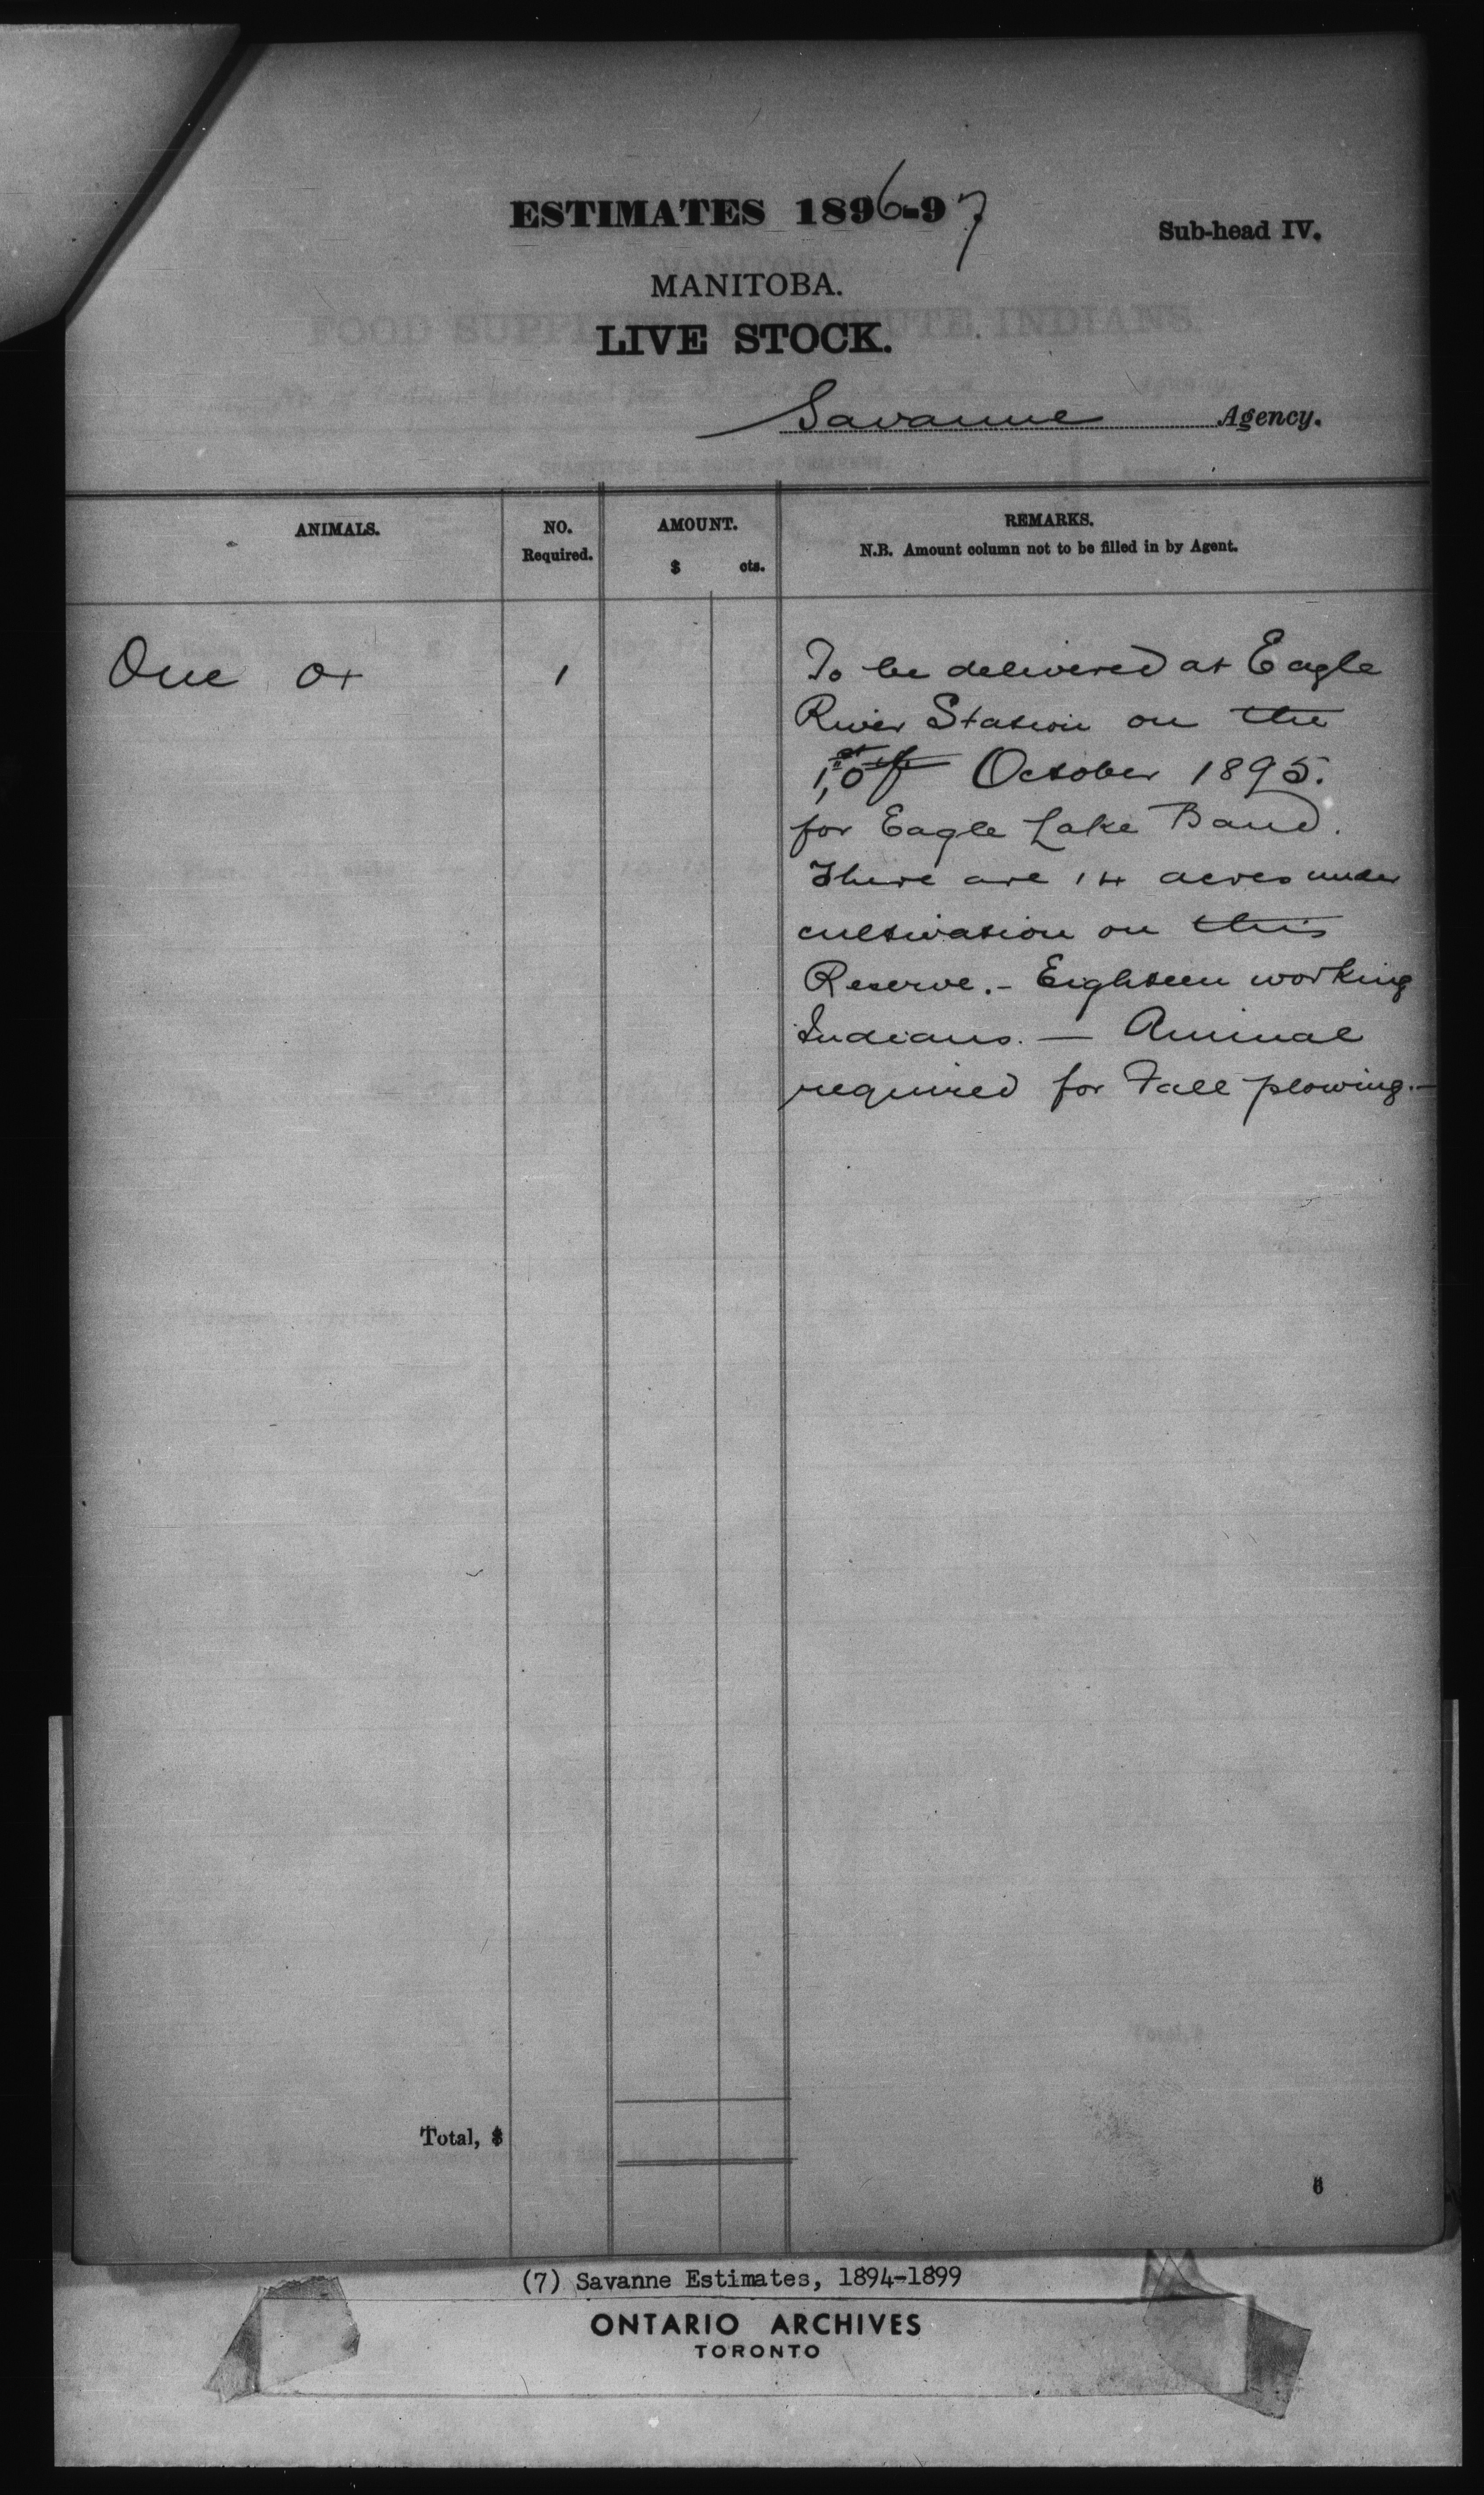 ESTIMATES 1896-97
Sub-head IV.
MANITOBA.
LIVE STOCK.
Savanne Agency.
ANIMALS.
NO.
Required.
AMOUNT.
$ cts.
REMARKS.
N.B. Amount column not to be filled in by Agent.
One ox
1
To be delivered at Eagle
River Station on the
October 1895.
for Eagle Lake Band.
There are 14 acres under
cultivation on this
Reserve. - Eighteen working
Indians. — Animal
required for Fall plowing. -
Total, $
6
(7) Savanne Estimates, 1894-1899
ONTARIO ARCHIVES
TORONTO